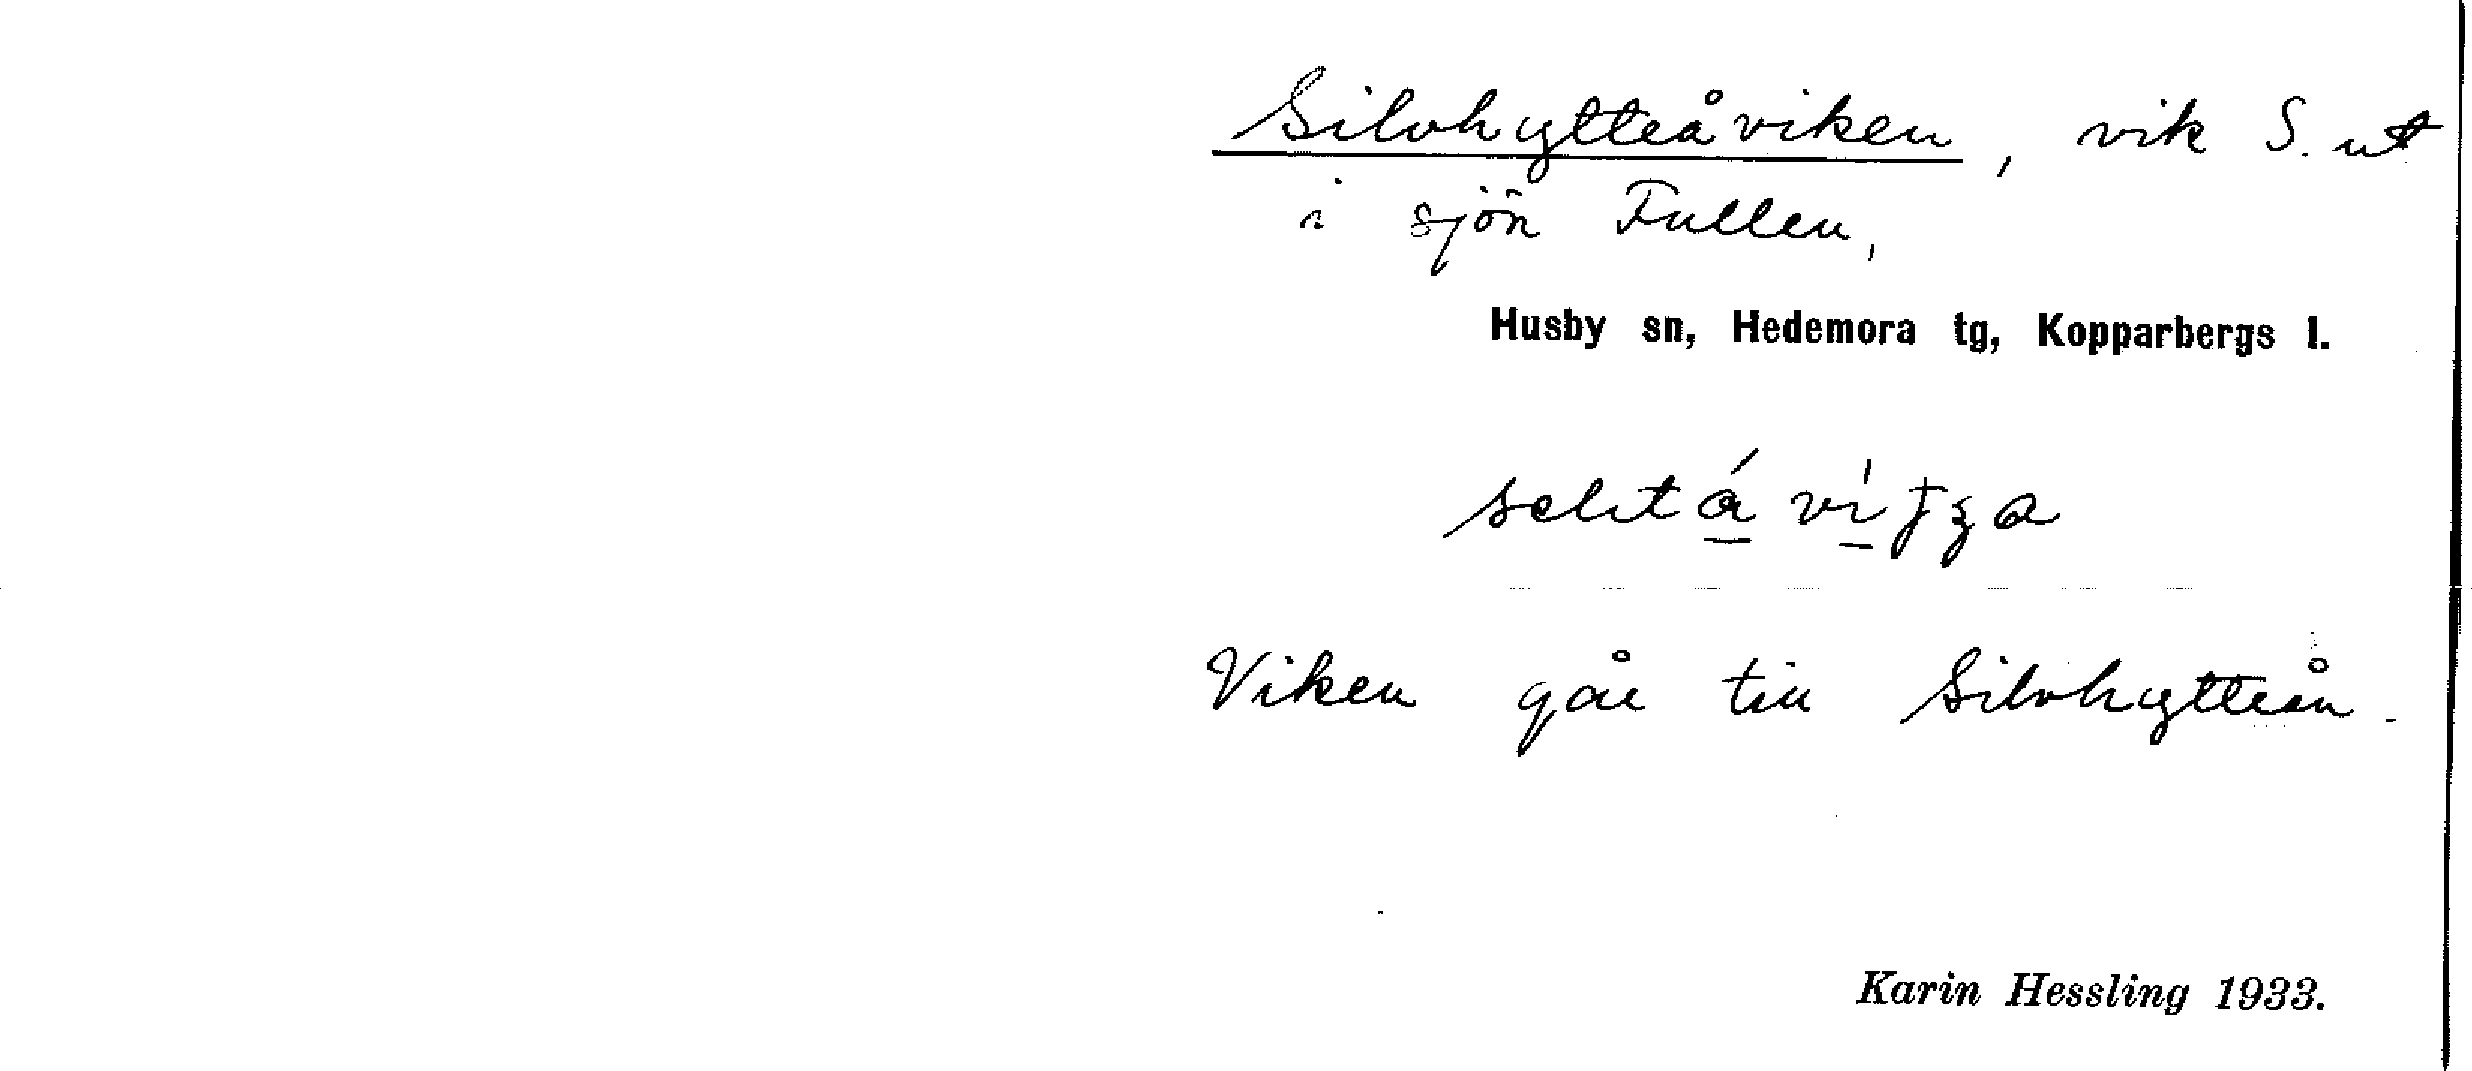 Silvhytteåviken, vik S. ut
i sjön Fullen,
Husby sn, Hedemora tg, Kopparbergs l.
Viken går till Silvhytteån.
Karin Hessling 1933.